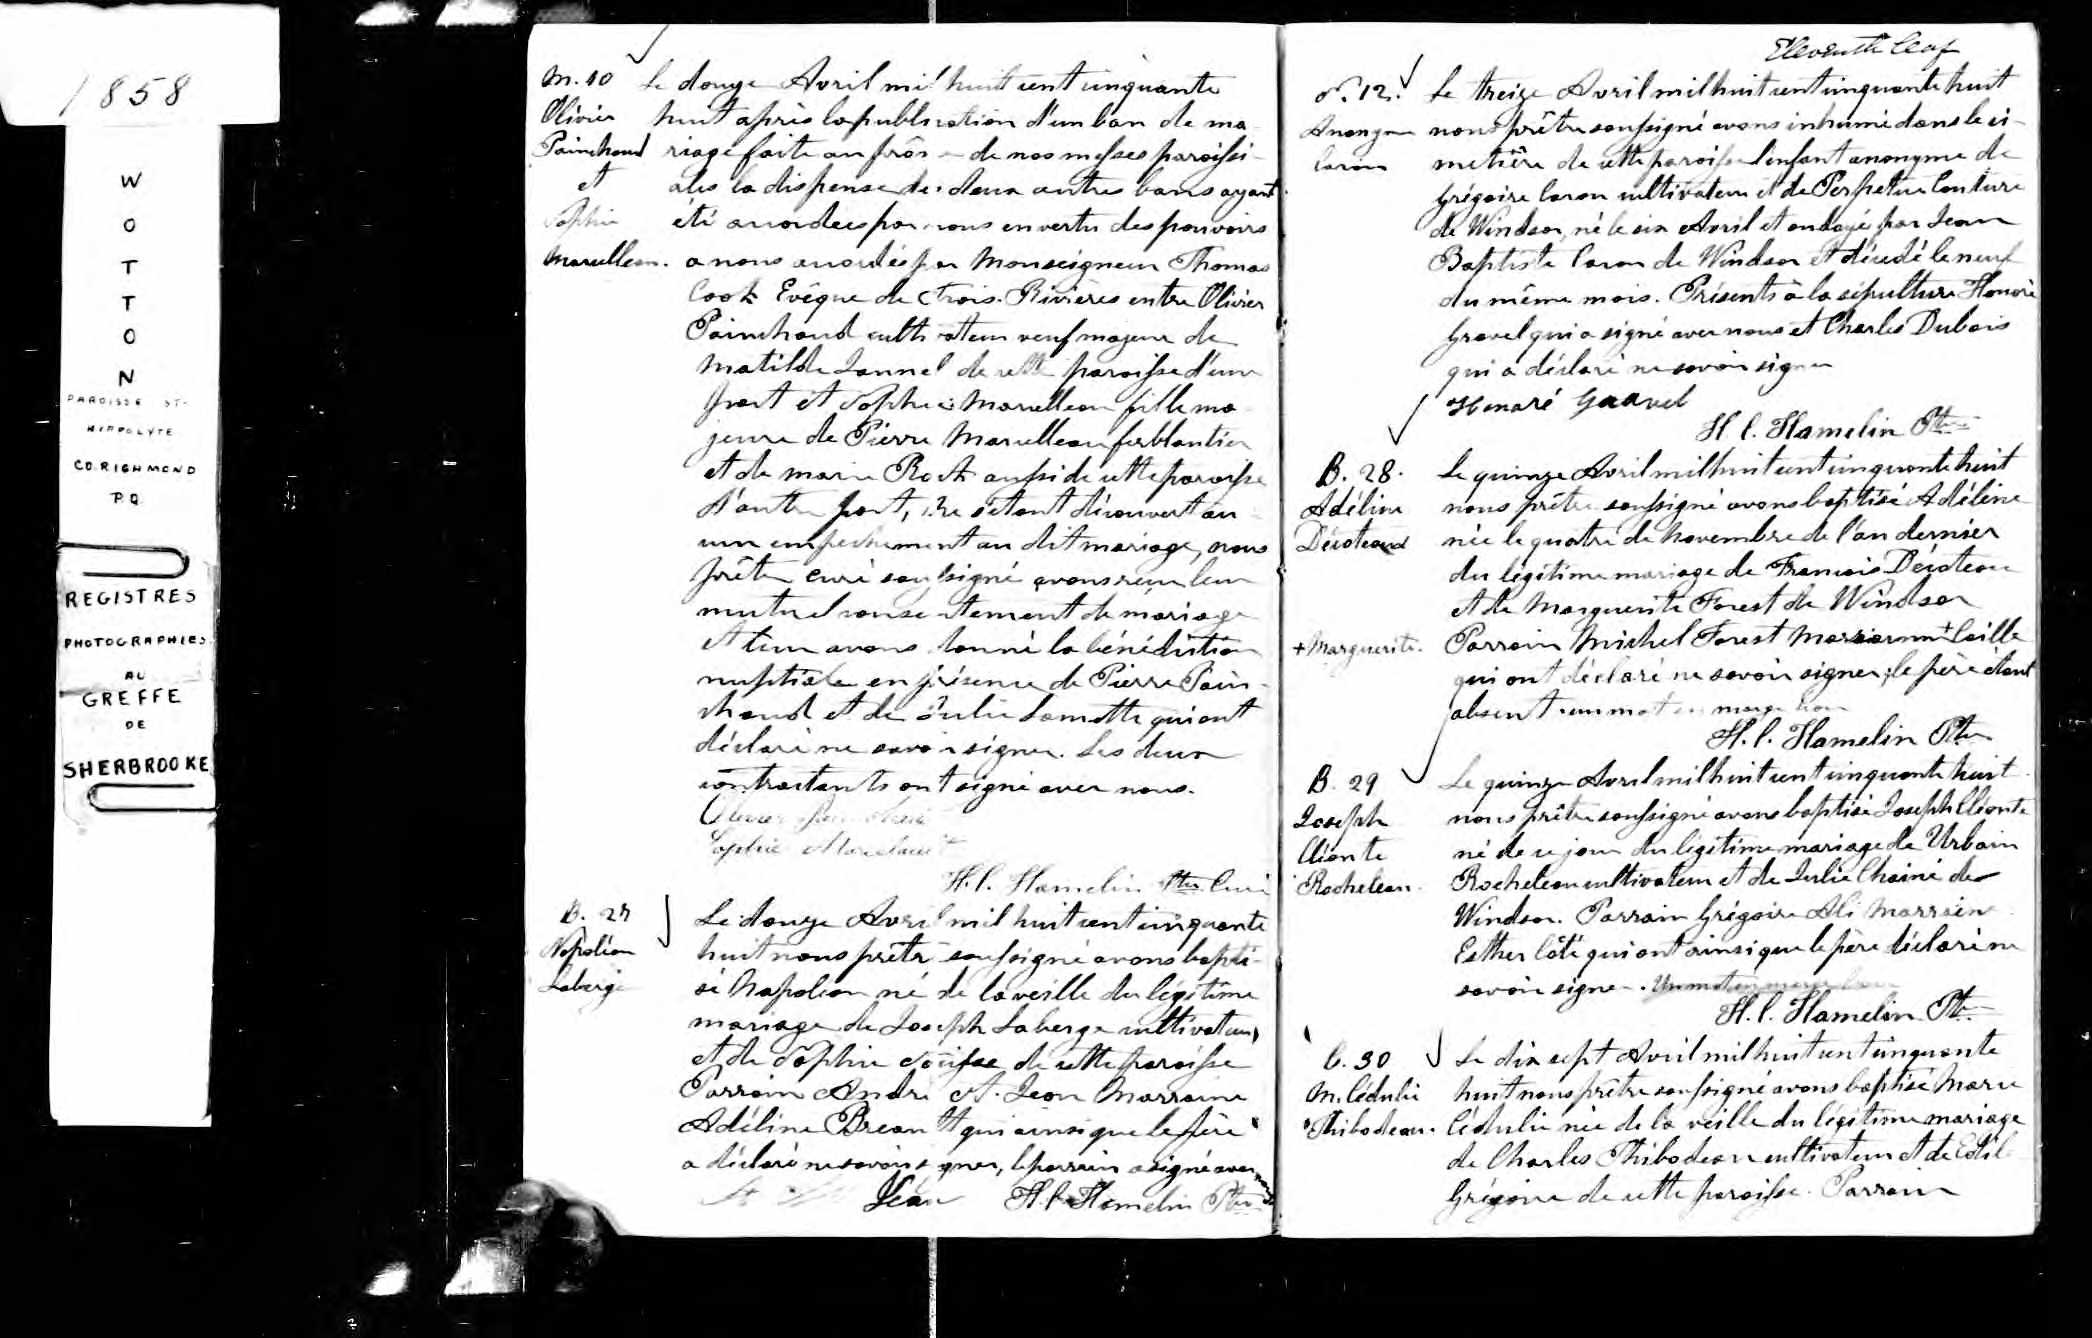 1858
WOTTON
PAROISSE ST-
HIPPOLYTE
CO. RICHMOND
P.Q.
REGISTRES
PHOTOGRAPHIES
AU
GREFFE
DE
SHERBROOKE
M. 10
Olivier
Painchaud
et
Sophie
Marcelleau.
Le douze Avril mil huit cent cinquante
huit après la publication d'un ban de ma-
riage faite au prône de nos messes paroissi-
ales la dispense des deux autres bans ayant
été accordées par nous en vertu des pouvoirs
a nous accordés par Monseigneur Thomas
Cook Evêque de Trois-Rivières entre Olivier
Painchaud cultivateur veuf majeur de
Matilde Lannel de cette paroisse d'une
part et Sophie Marcelleau fille ma-
jeure de Pierre Marcelleau ferblantier
et de Marie Rock aussi de cette paroisse
d'autre part, ne s'étant découvert au-
cun empechement au dit mariage, nous
prêtre curé soussigné avons reçu leur
mutuel consentement de mariage
et leur avons donné la bénédiction
nuptiale en présence de Pierre Pain-
chaud et de Julie Lamotte qui ont
déclaré ne savoir signer. Les deux
contractants ont signé avec nous.
Olivier Painchaud
Sophie
H. C. Hamelin Ptre Curé
B. 27
Napoléon
Laberge
Le douze Avril mil huit cent cinquante
huit nous prêtre soussigné avons bapti-
sé Napoléon né de la veille du légitime
mariage de Joseph Laberge cultivateur
et de Sophie de cette paroisse
Parrain André St. Jean Marraine
Adéline Breault qui ainsi que le père
a déclaré ne savoir signer, le parrain a signé avec nous
Jean H. C. Hamelin Ptre
Eleventh leaf
S. 12.
Anonyme
Caron
Le treize Avril mil huit cent cinquante huit
nous prêtre soussigné avons inhumé dans le ci-
metière de cette paroisse l'enfant anonyme de
Grégoire Caron cultivateur et de Perpetue Couture
de Windsor, né le six Avril et ondoyé par Jean
Baptiste Caron de Windsor et décédé le neuf
du même mois. Présents à la sépulture Honoré
Gravel qui a signé avec nous et Charles Dubois
qui a déclaré ne savoir signer
Honoré Gravel
H. C. Hamelin Ptre
B. 28.
Adéline
Décoteaud
+ Marguerite.
Le quinze Avril mil huit cent cinquante huit
nous prêtre soussigné avons baptisé Adéline
née le quatre de Novembre de l'an dernier
du légitime mariage de François Décoteau
et de Marguerite Forest de Windsor
Parrain Michel Forest Marraine + Caille
qui ont déclaré ne savoir signer; le père étant
absent un mot en marge bon
H. C. Hamelin Ptre
B. 29
Joseph
Cléonte
Rocheleau.
Le quinze Avril mil huit cent cinquante huit
nous prêtre soussigné avons baptisé Joseph Cléonte
né de ce jour du légitime mariage de Urbain
Rocheleau cultivateur et de Julie Chainé de
Windsor. Parrain Grégoire Ali Marraine
Esther Côté qui ont ainsi que le père déclaré ne
savoir signer. Un mot en marge bon
H. C. Hamelin Ptre
B. 30
M. Cédulie
Thibodeau.
Le dix sept Avril mil huit cent cinquante
huit nous prêtre soussigné avons baptisé Marie
Cédulie née de la veille du légitime mariage
de Charles Thibodeau cultivateur et de
Grégoire de cette paroisse. Parrain